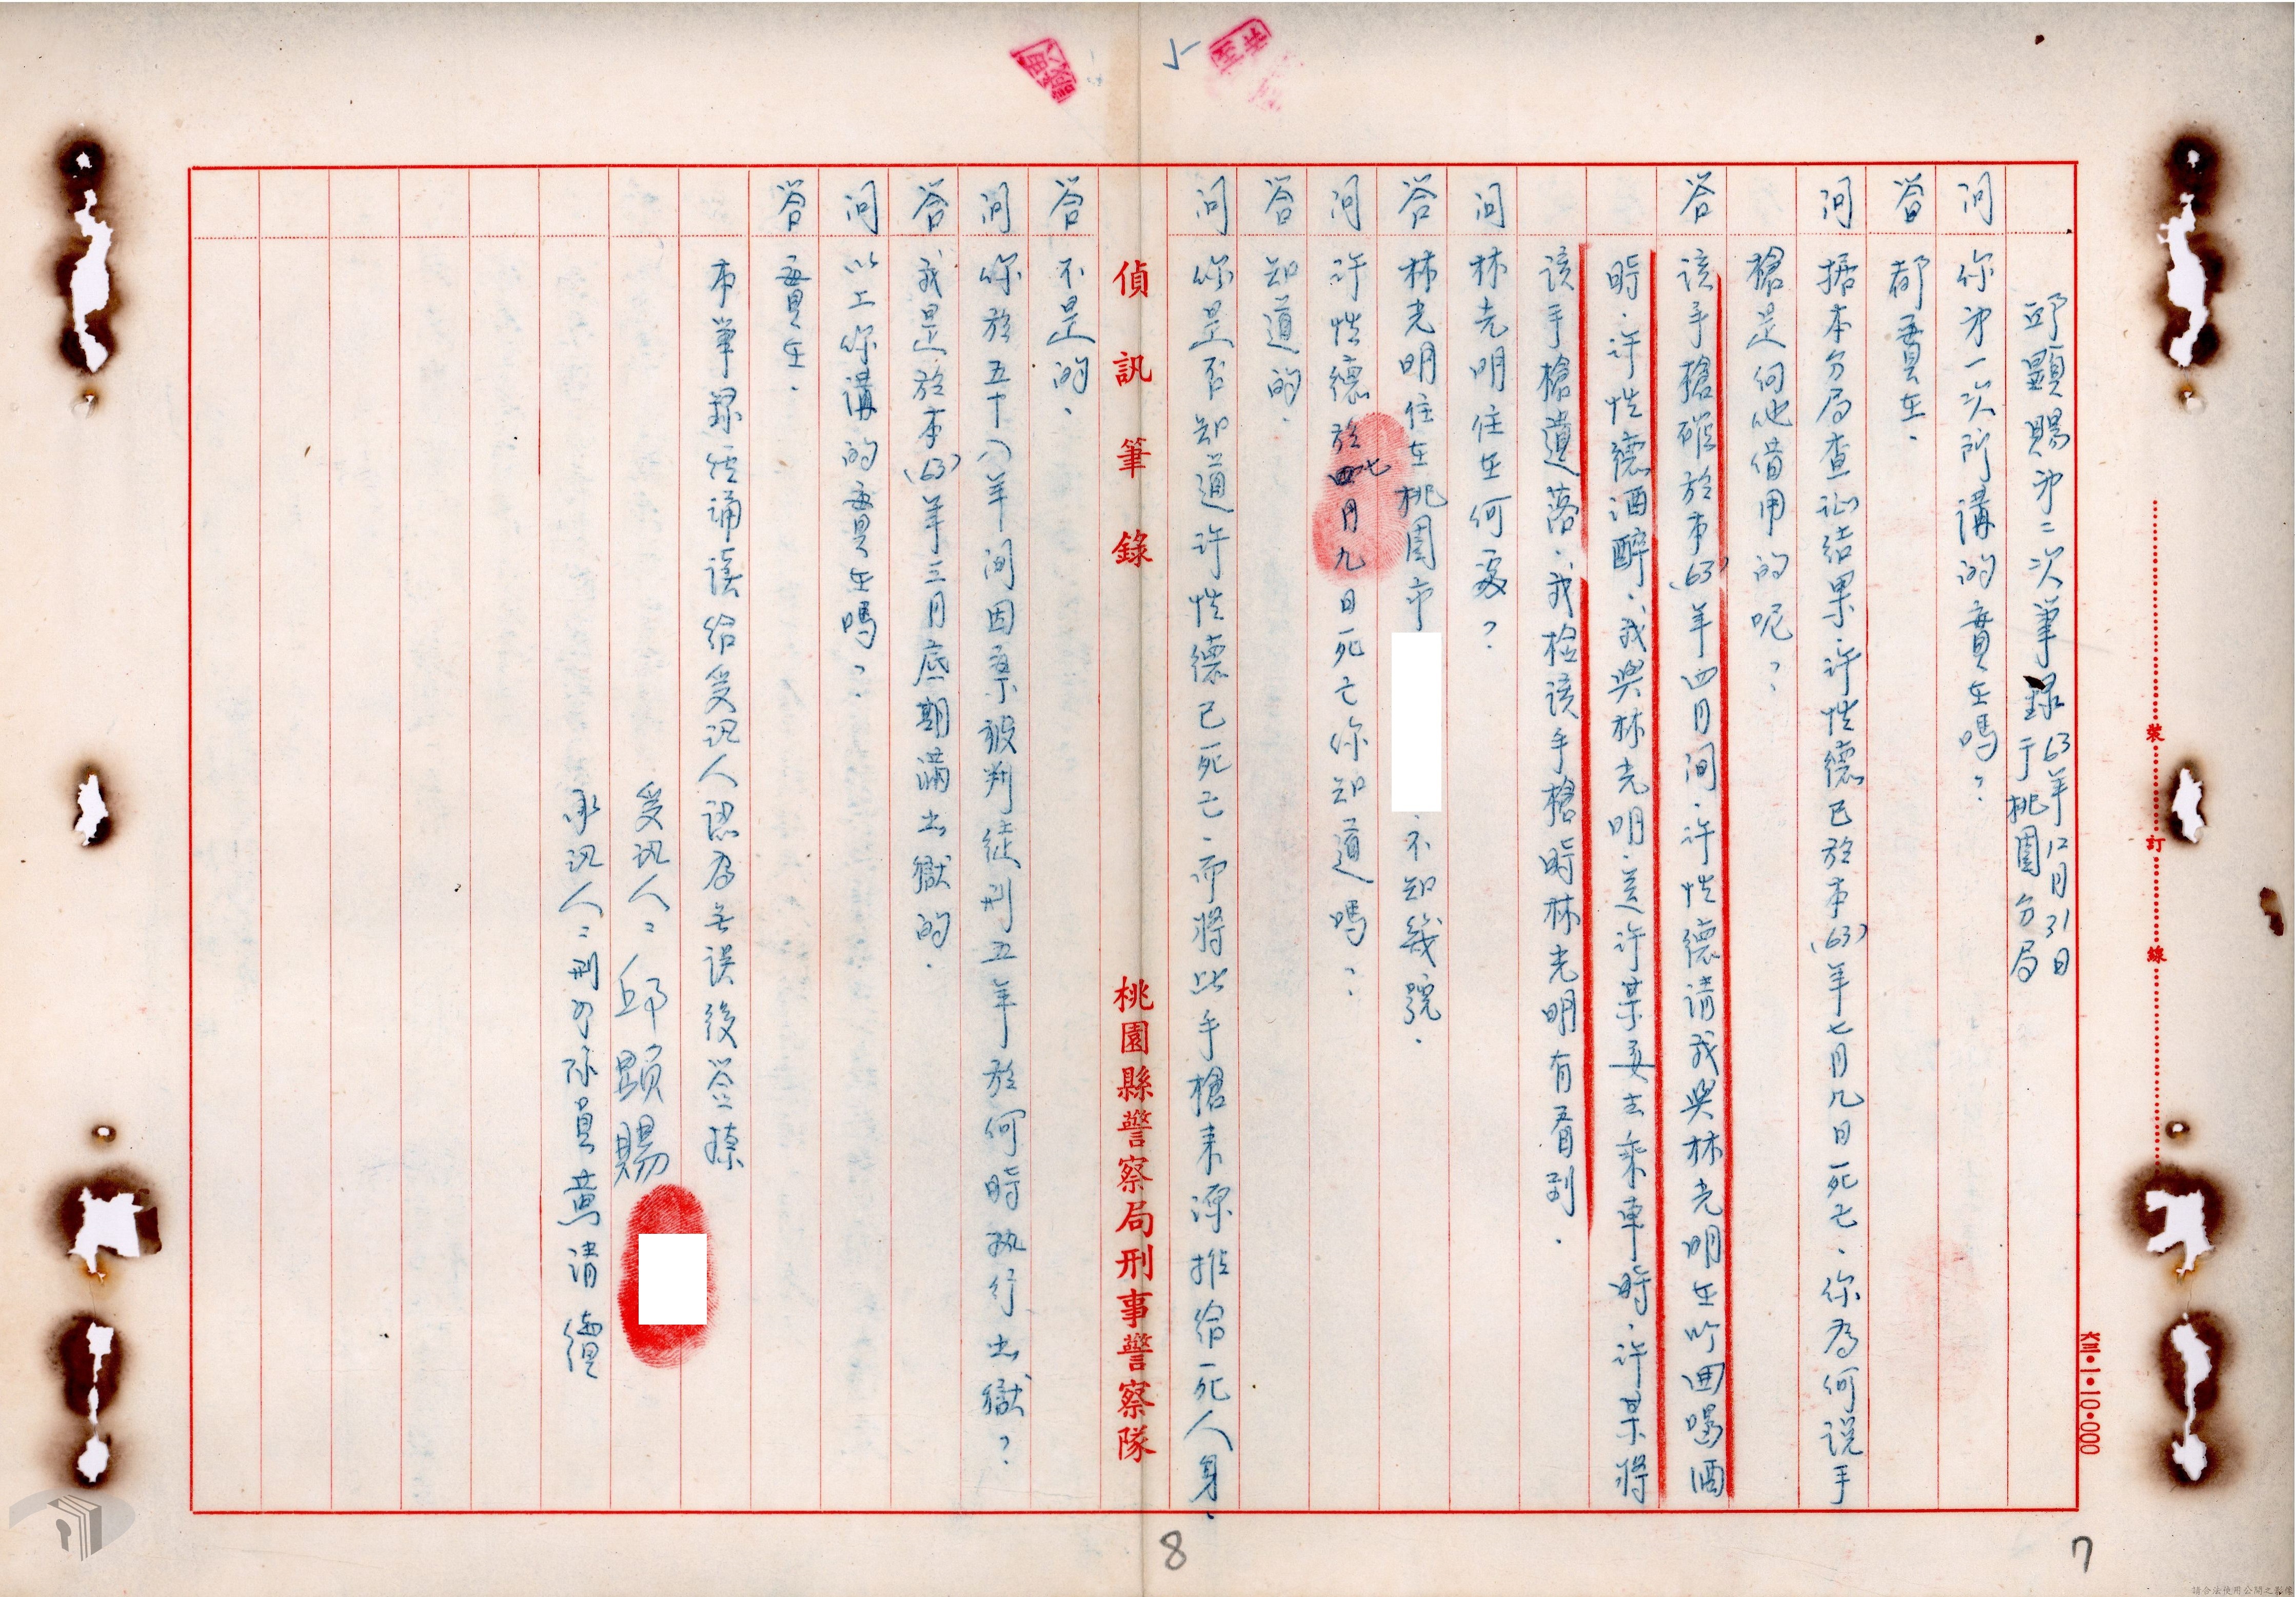 邱顯賜第二次筆錄 63年12月31日
于桃園分局
問 你第一次所講的實在嗎？
答 都實在．
問 据本分局查証結果．許性德已於本(63)年七月九日死亡．你為何說手
槍是向他借用的呢？
答 該手槍確於本(63)年四月間．許性德請我與林光明在吃酒
時．許性德酒醉．我與林光明送許某要去乘車時．許某將
該手槍遺落．我檢該手槍時林光明有看到．
問 林光明住在何處？
答 林光明住在桃園市 ．不知幾號．
問 許性德於七月九日死亡你知道嗎？
答 知道的．
問 你是否知道許性德已死亡．而將此手槍來源推給死人身．
偵訊筆錄 桃園縣警察局刑事警察隊
答 不是的．
問 你於五十八年間因案被判徒刑五年於何時执行出獄？
答 我是於本(63)年三月底期滿出獄的．
問 以上你講的實在嗎？
答 實在．
本筆錄經誦讀給受訊人認為無誤後簽捺
受訊人：邱顯賜
承訊人：刑事隊員黃清
裝 訂 線
8
7
請合法使用公開之影像